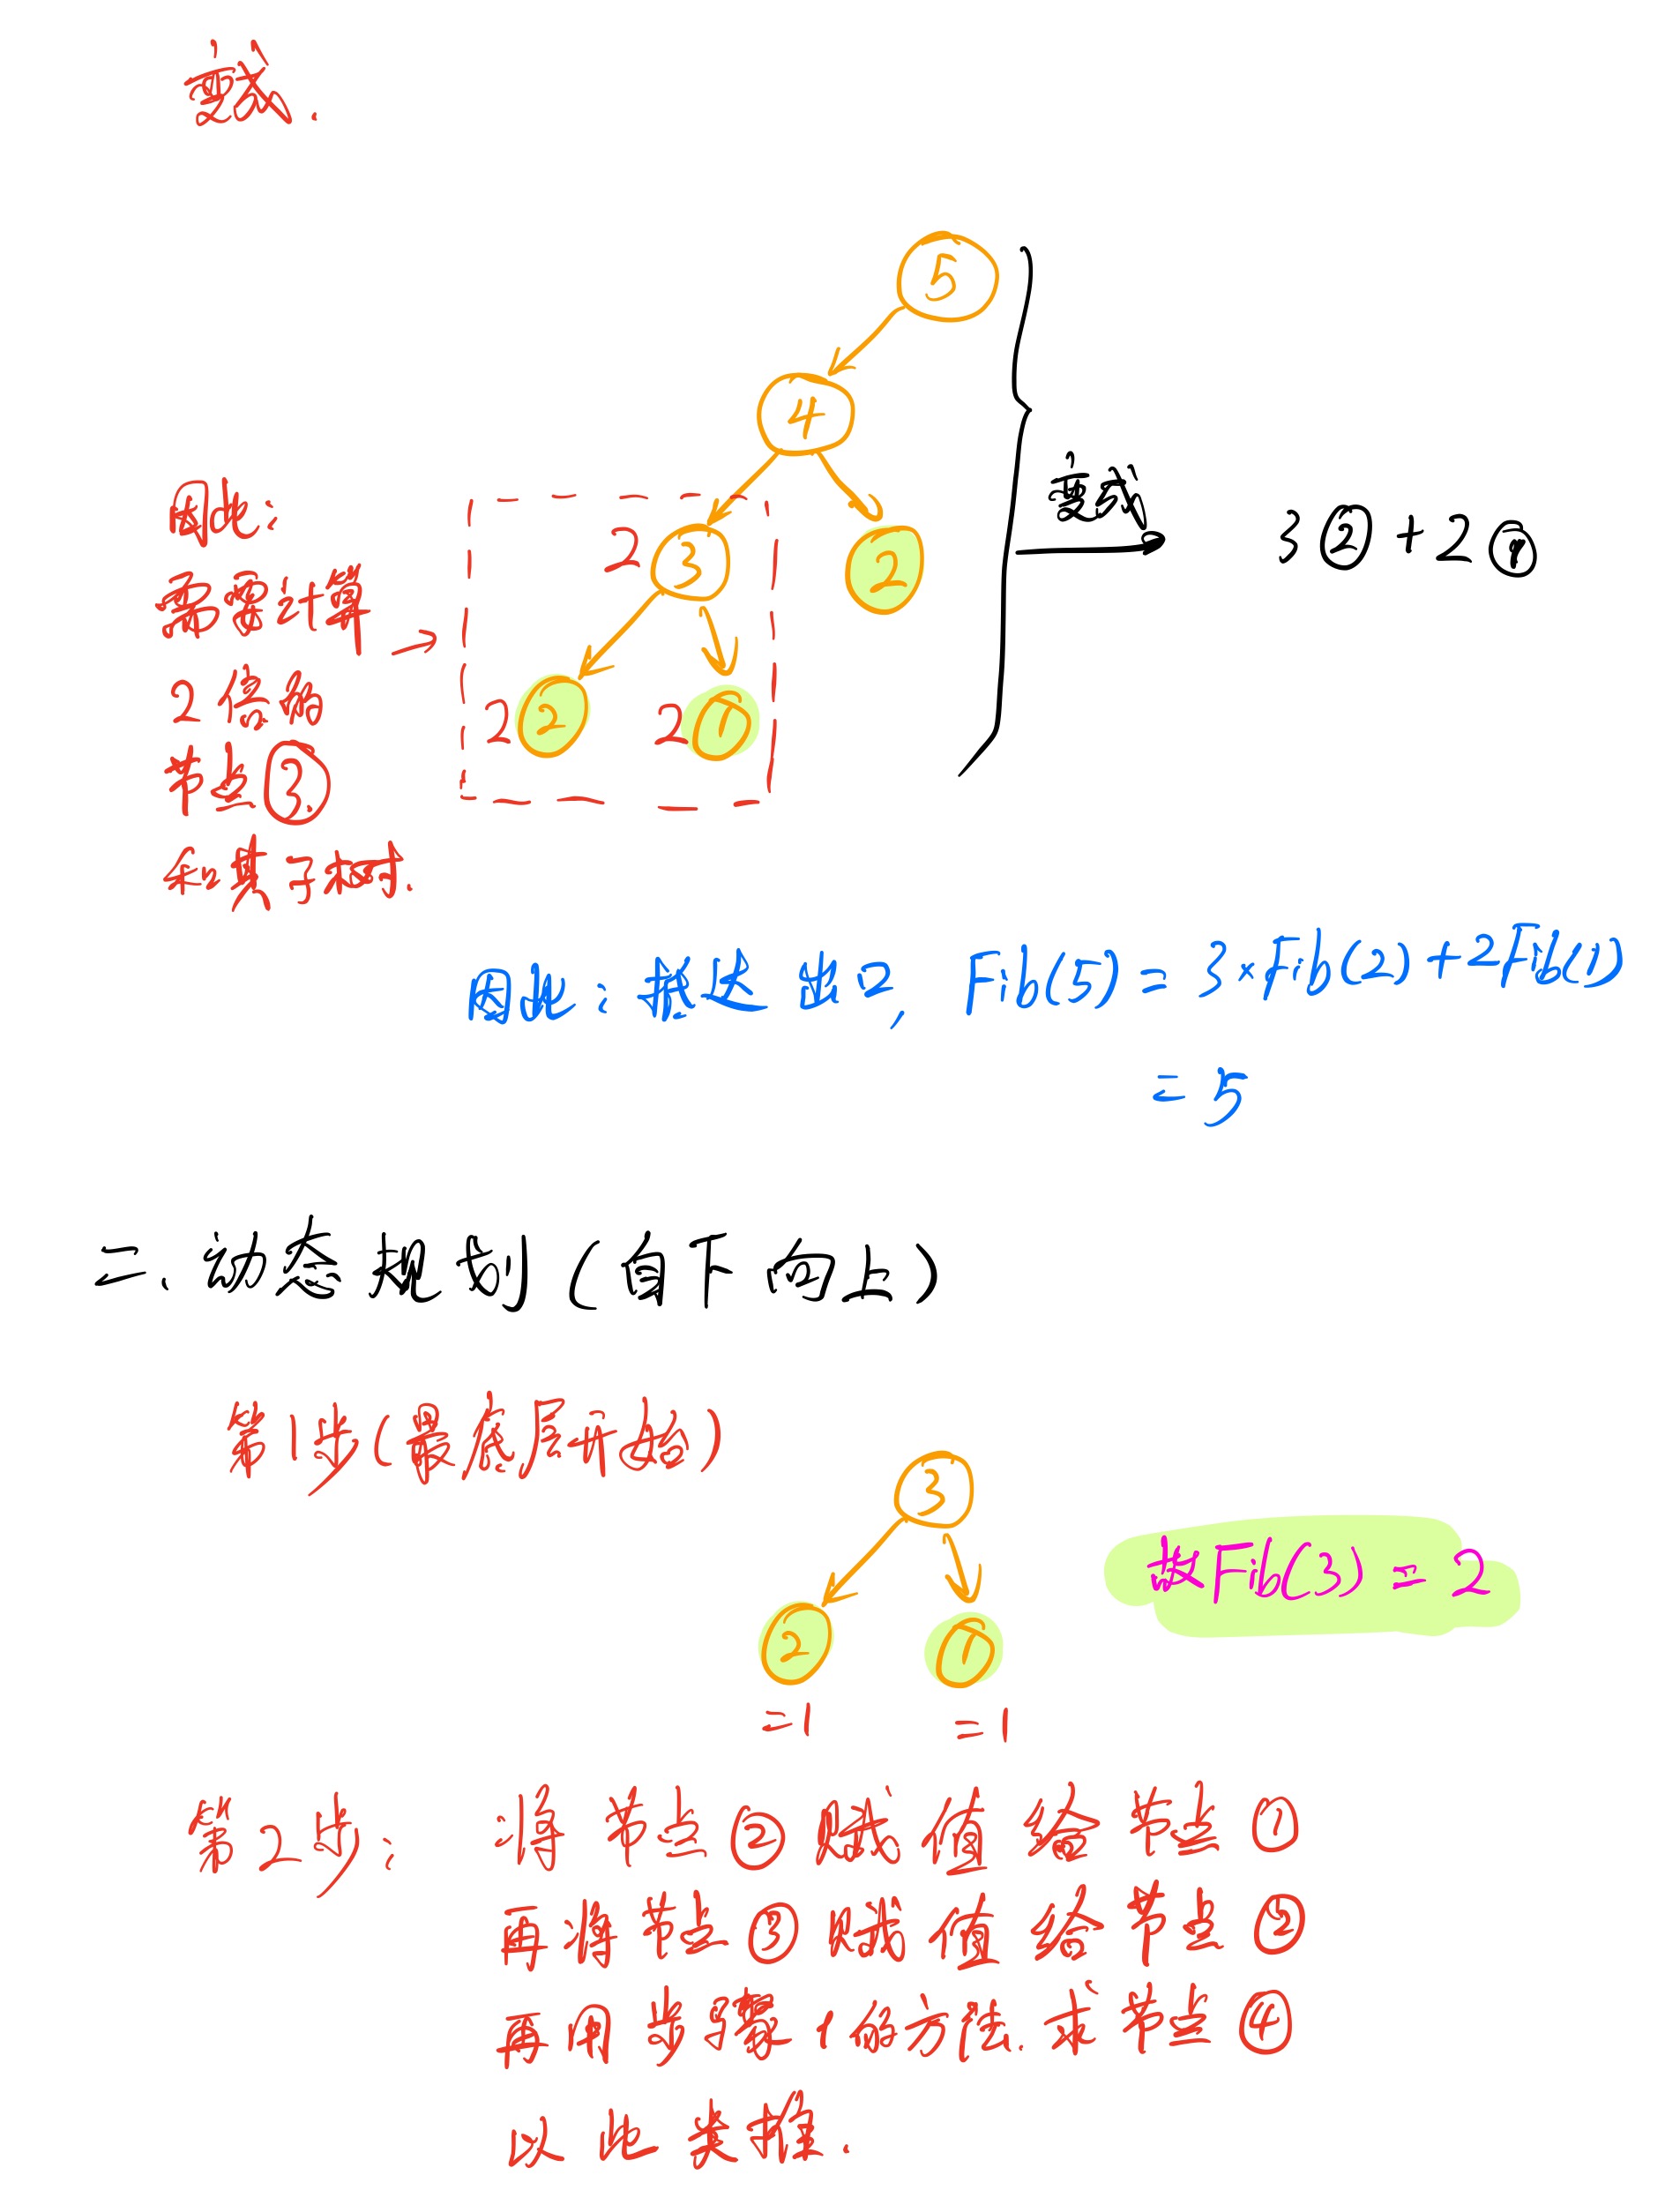 变成.
5
4
因此:
需要计算
2倍的
节点③
和其子树.
2 3
2
2 2
2 1
变成
3②+2①
因此:表达出口, Fib(5)=3×Fib(2)+2Fib(1)
=5
二、动态规划(自下向上)
第1步(最底层开始)
3
2
1
=1
=1
故Fib(3)=2
第2步:
将节点②赋值给节点①
再将节点③赋值给节点②
再用步骤1的方法.求节点④
以此类推.